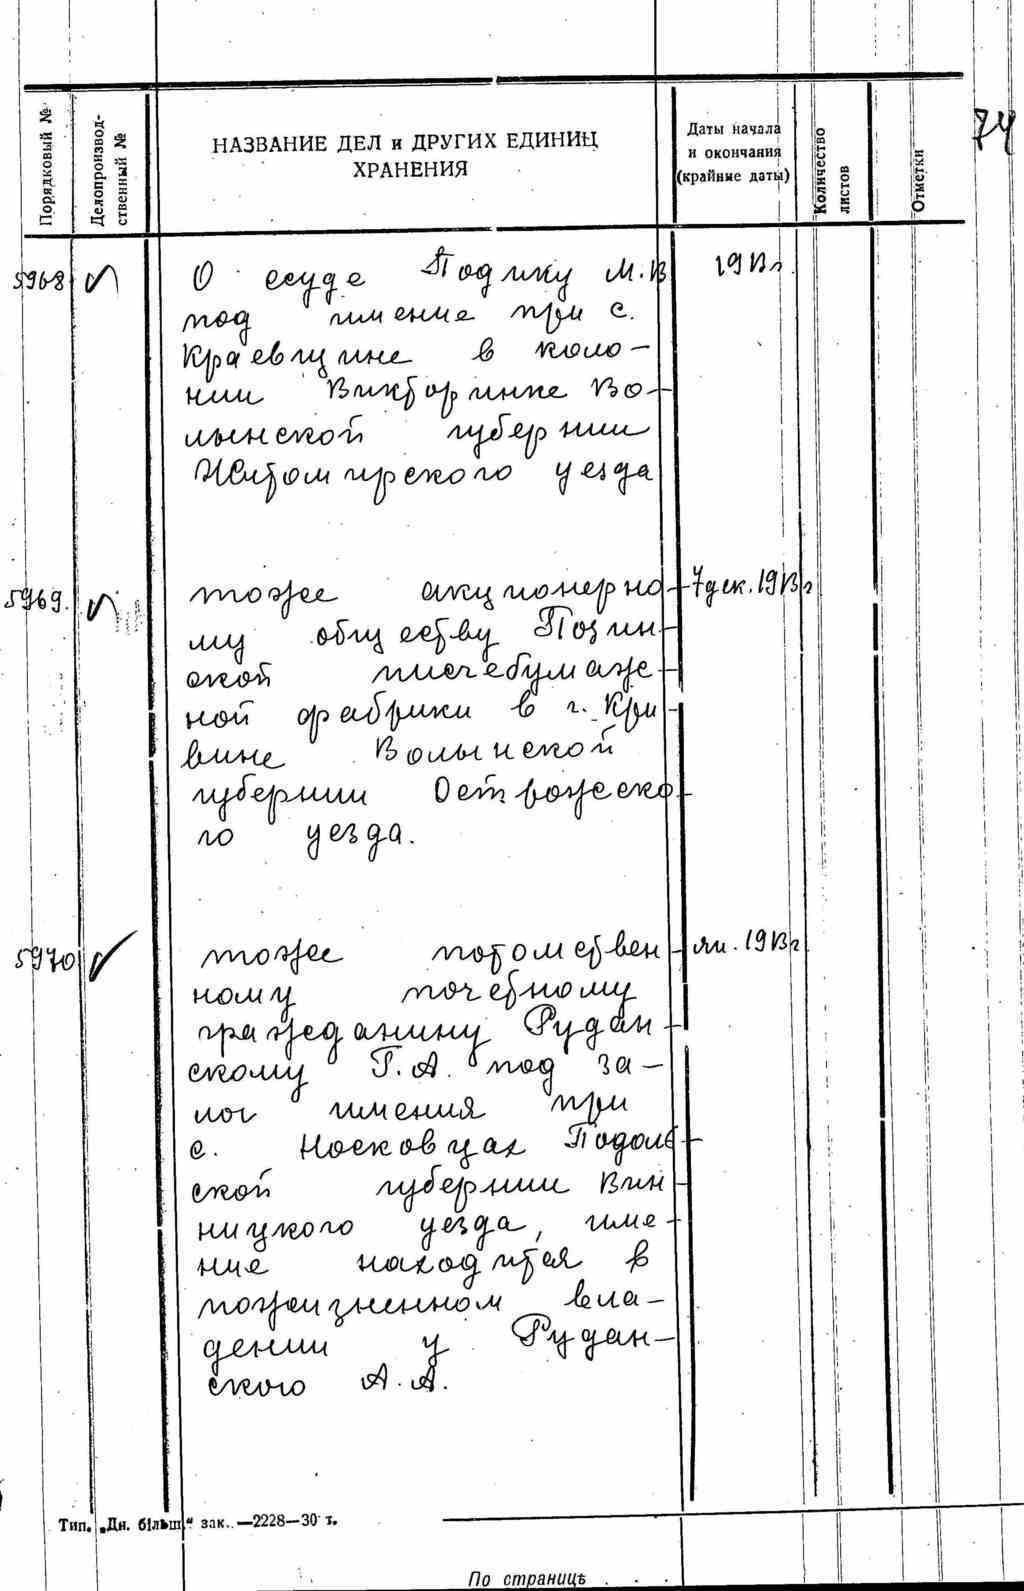 74
Порядковый №
Делопроизвод-
ственный №
НАЗВАНИЕ ДЕЛ и ДРУГИХ ЕДИНИЦ
ХРАНЕНИЯ
Даты начала
и окончания
(крайние даты)
Количество
листов
Отметки
5968
О ссуде Подику М.В
1913 г
под имение при с.
Краевщине в коло-
нии Викторинке Во-
лынской губернии
Житомирского уезда
5969.
тоже акционерно-
7 дек. 1913 г
му обществу Позин-
ской писчебумаж-
ной фабрики в г. Кри-
вине Волынской
губернии Острожско-
го уезда.
5970
тоже потомствен-
ян. 1913 г
ному почетному
гражданину Рудан-
скому Г.А. под за-
лог имения при
с. Носковцах Подоль-
ской губернии Вин-
ницкого уезда, име-
ние находится в
пожизненном вла-
дении у Рудан-
ского А.А.
Тип. „Дн. більш.“ зак. —2228—30 т.
По странице